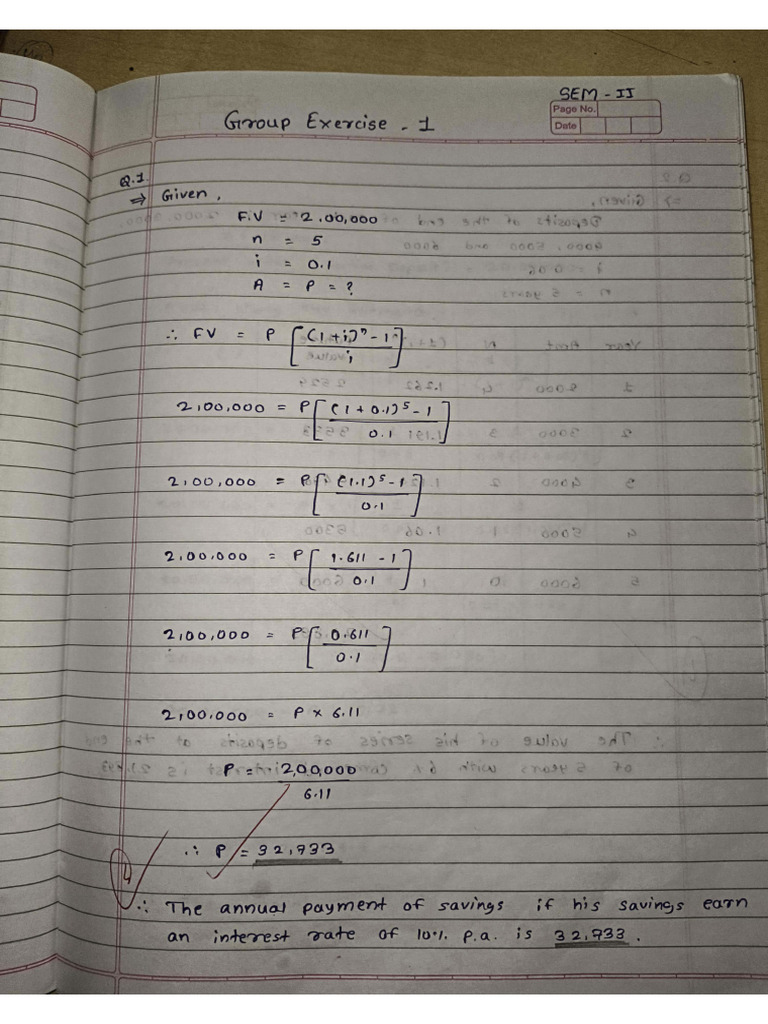 SEM - II
Page No.
Date
Group Exercise - 1
Q.1.
⇒ Given,
F.V = 2,00,000
n = 5
i = 0.1
A = P = ?
∴ FV = P [ (1+i)ⁿ - 1 / i ]
2,00,000 = P [ (1 + 0.1)⁵ - 1 / 0.1 ]
2,00,000 = P [ (1.1)⁵ - 1 / 0.1 ]
2,00,000 = P [ 1.611 - 1 / 0.1 ]
2,00,000 = P [ 0.611 / 0.1 ]
2,00,000 = P × 6.11
P = 2,00,000 / 6.11
∴ P = 32,733
4
∴ The annual payment of savings if his savings earn
an interest rate of 10% p.a. is 32,733.